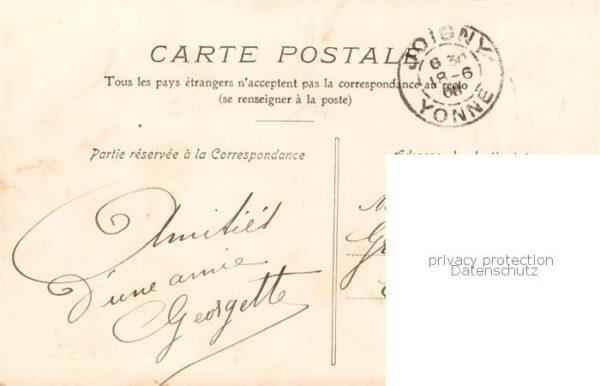 CARTE POSTALE
Tous les pays étrangers n'acceptent pas la correspondance au recto
(se renseigner à la poste)
JOIGNY
6 30
18-6
YONNE
Partie réservée à la Correspondance
Amitiés
d'une amie
Georgette
privacy protection
Datenschutz